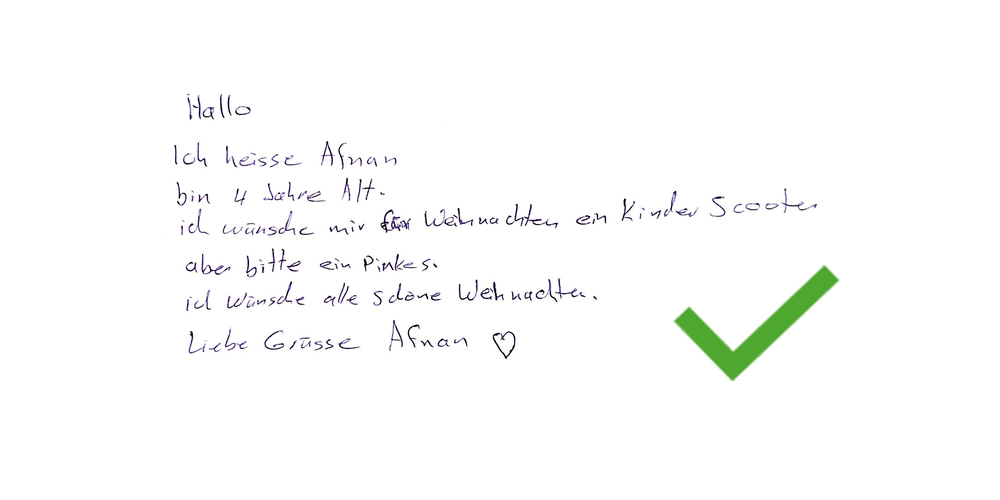 Hallo
Ich heisse Afnan
bin 4 Jahre Alt.
ich wünsche mir für Weihnachten ein Kinder Scooter
aber bitte ein Pinkes.
ich wünsche alle schöne Weihnachten.
Liebe Grüsse Afnan ♡